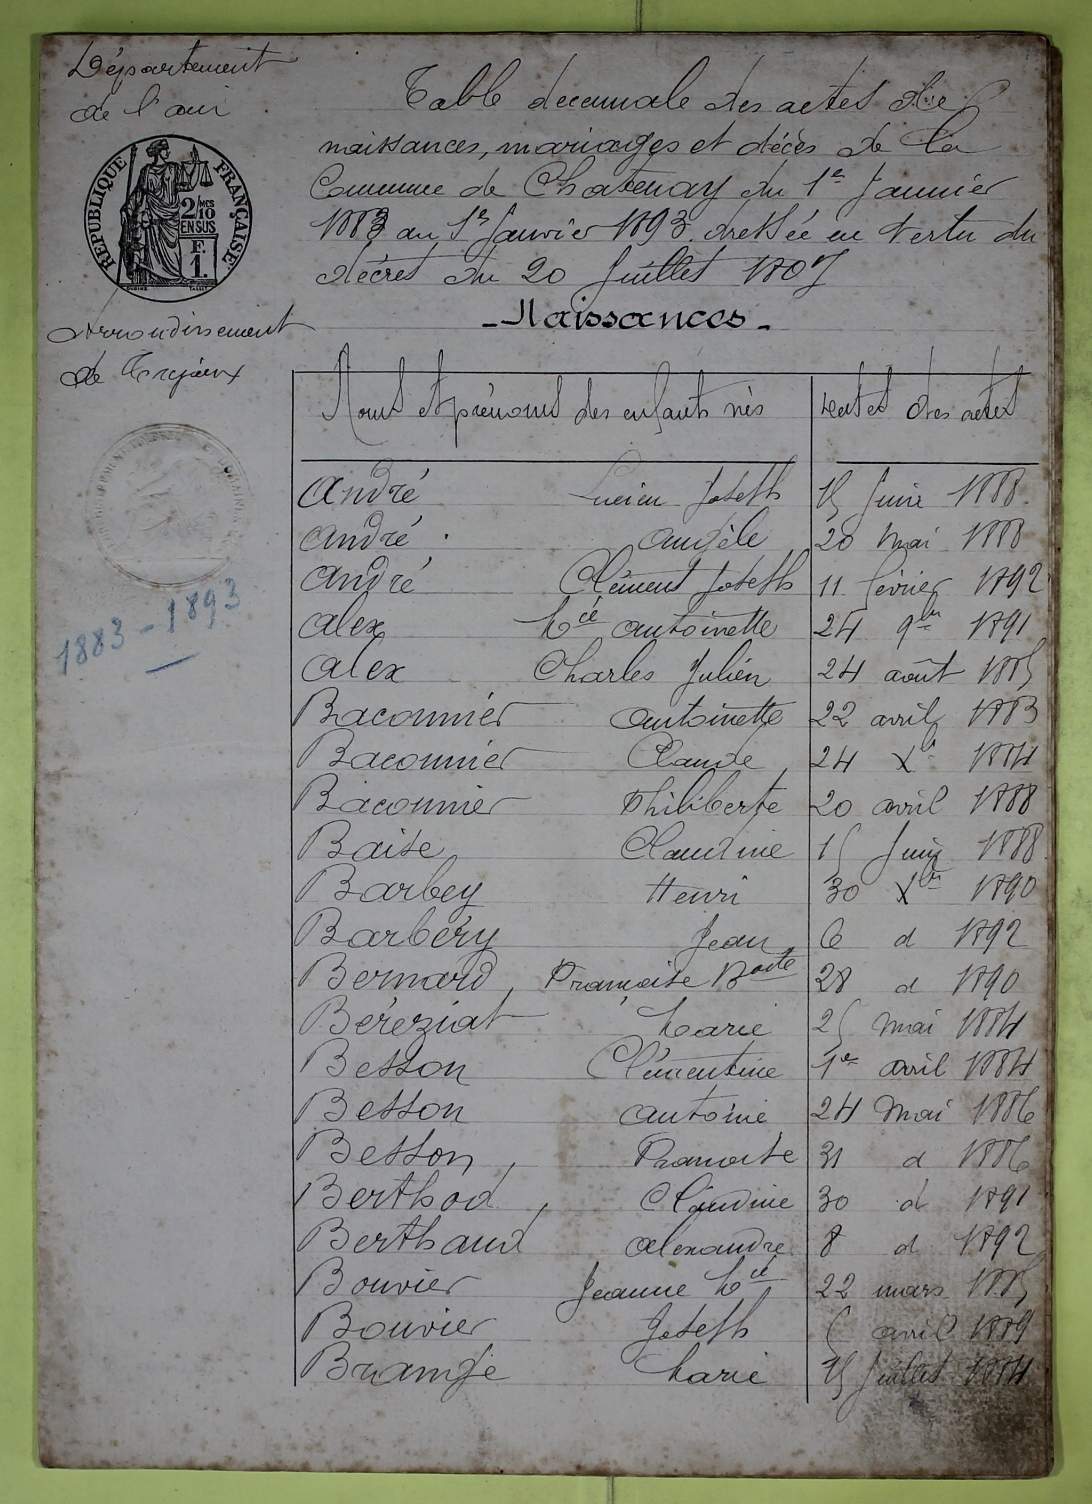 Département
de l'ain
Table decennale des actes de
naissances, mariages et décès de la
Commune de Chatenay du 1er Janvier
1883 au 1er Janvier 1893 dressée en vertu du
décret du 20 Juillet 1807
RÉPUBLIQUE FRANÇAISE
2/10 MES
EN SUS
F.
1.
Arrondissement
de Trévoux
- Naissances -
Noms et prénoms des enfants nés dates des actes
André Lucien Joseph 15 Juin 1888
André Angèle 20 Mai 1888
André Clément Joseph 11 février 1892
Alex Mie antoinette 24 9bre 1891
Alex Charles Julien 24 août 1885
1883-1893
Baconnier Antoinette 22 avril 1883
Baconnier Claude 24 Xe 1884
Baconnier Philiberte 20 avril 1888
Baise Claudine 15 Juin 1888
Barbey Henri 30 Xbre 1890
Barbéry Jean 6 d 1892
Bernard Françoise Boite 28 d 1890
Béréziat Marie 25 mai 1884
Besson Clémentine 1er avril 1884
Besson Antoine 24 Mai 1886
Besson Françoise 31 d 1886
Berthod Claudine 30 d 1891
Berthaud Alexandre 8 d 1892
Bouvier Jeanne Mie 22 mars 1885
Bouvier Joseph 6 avril 1889
Brangé Marie 15 Juillet 1884